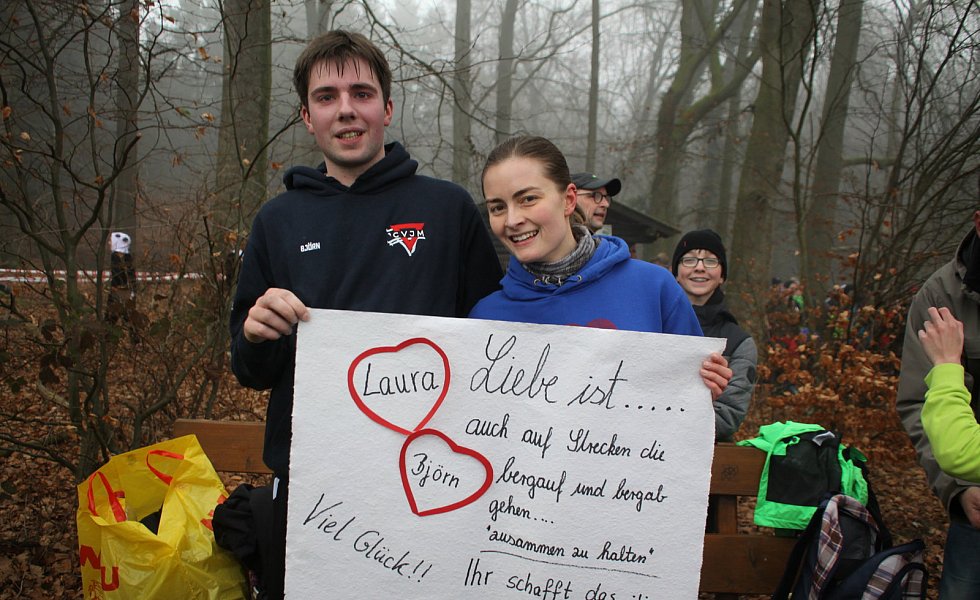 BJÖRN
CVJM
Laura
Björn
Liebe ist.....
auch auf Strecken die
bergauf und bergab
gehen....
"zusammen zu halten"
Viel Glück!!
Ihr schafft das